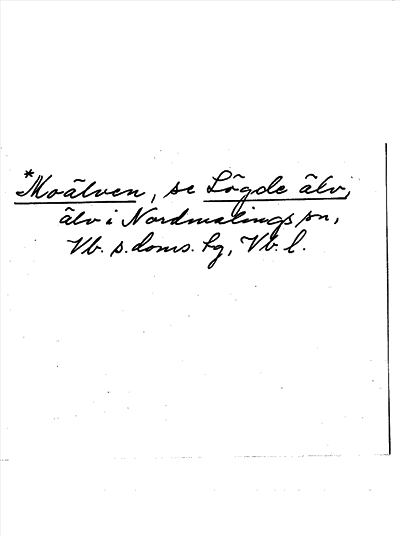 *Moälven, se Lögde älv,
älv i Nordmalings sn,
Vb. s. doms. tg, Vb. l.